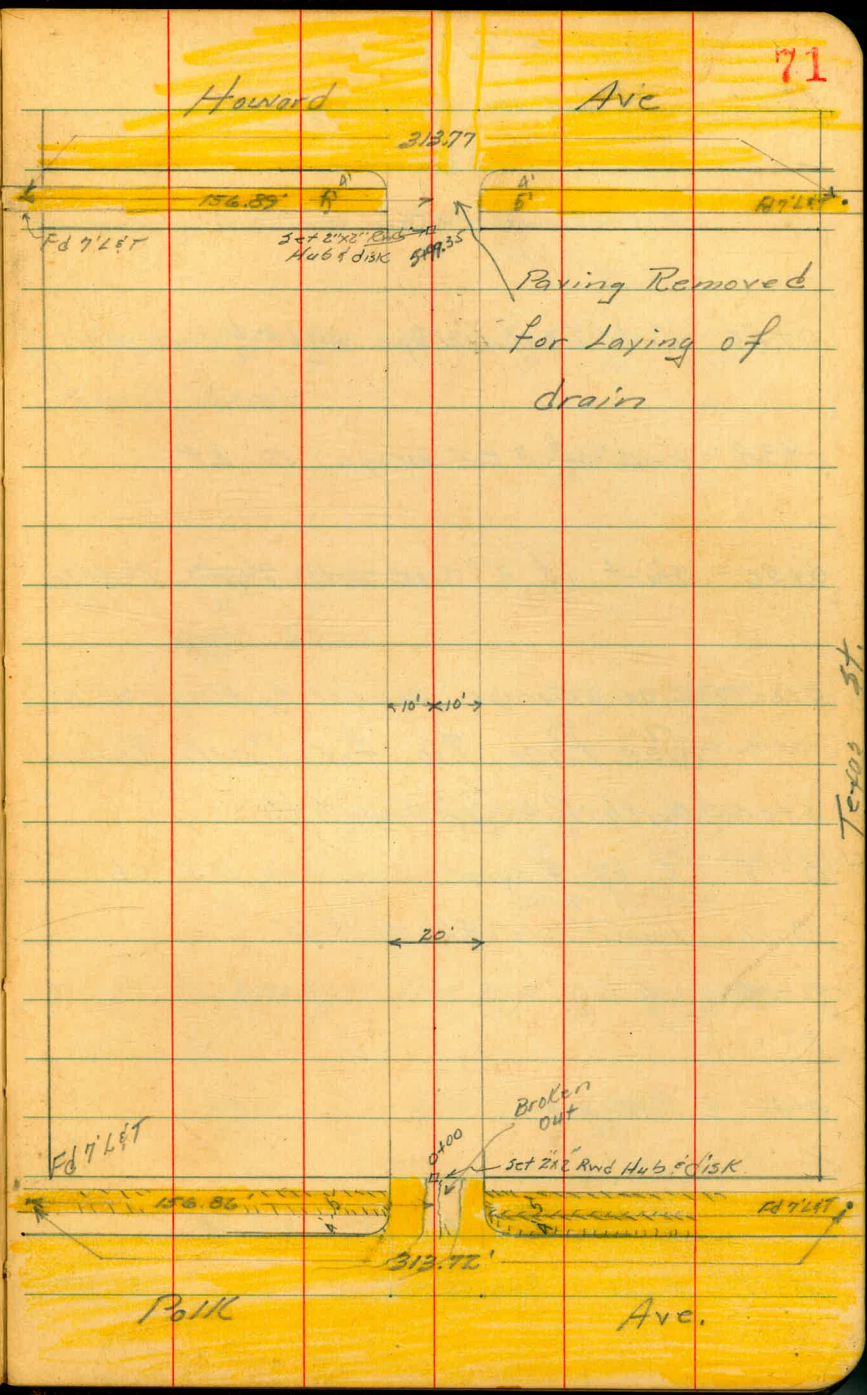 71
Howard Ave
313.77
4' 4'
156.89' 5' 5' Fd 7' L&T
Fd 7' L&T
Set 2"x2" Rwd
Hub & disk
Paving Removed
for Laying of
drain
10' 10'
Texas St.
20'
Broken
Out
Fd 7' L&T
0+00
Set 2"x2" Rwd Hub & disk
156.86 Fd 7' L&T
313.72'
Polk Ave.